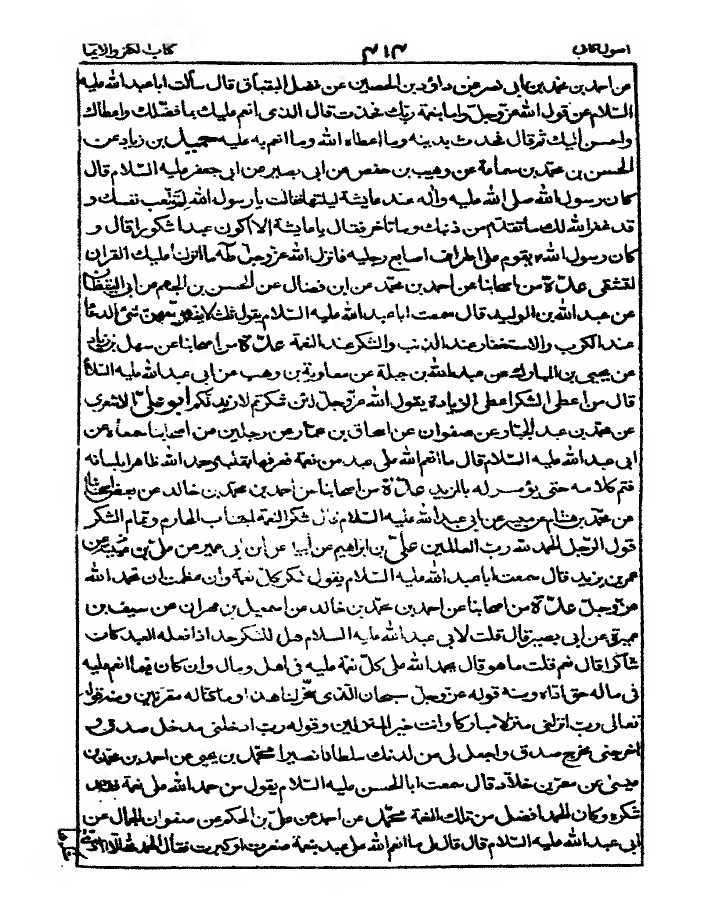 اصول كافى ٣١٣ كتاب الكفر والايما
عن احمد بن محمد بن ابى نصر عن داود بن الحصين عن فضل البقباق قال سألت ابا عبد الله عليه
السلام عن قول الله عز وجل واما بنعمة ربك فحدث قال الذى انعم عليك بما فضلك واعطاك
واحسن اليك ثم قال فحدث بدينه وما اعطاه الله وما انعم به عليه حميد بن زياد عن
الحسن بن محمد بن سماعة عن وهيب بن حفص عن ابى بصير عن ابى جعفر عليه السلام قال
كان رسول الله صلى الله عليه وآله عند عايشة ليلتها فقالت يا رسول الله لِمَ تتعب نفسك و
قد غفر الله لك ما تقدم من ذنبك وما تأخر فقال يا عايشة الا اكون عبدا شكورا قال و
كان رسول الله يقوم على اطراف اصابع رجليه فانزل الله عز وجل طه ما انزلنا عليك القران
لتشقى عدّة من اصحابنا عن احمد بن محمد عن ابن فضال عن الحسن بن الجهم عن ابى اليقظان
عن عبد الله بن الوليد قال سمعت ابا عبد الله عليه السلام يقول ثلث لا يضر معهن شئ الدعا
عند الكرب والاستغفار عند الذنب والشكر عند النعمة عدّة من اصحابنا عن سهل بن زياد
عن يحيى بن المبارك عن عبد الله بن جبلة عن معاوية بن وهب عن ابى عبد الله عليه السلا
قال من اعطى الشكر اعطى الزيادة يقول الله عز وجل لئن شكرتم لازيدنكم ابو على الاشعرى
عن محمد بن عبد الجبار عن صفوان عن اسحاق بن عمار عن رجلين من اصحابنا سمعاه عن
ابى عبد الله عليه السلام قال ما انعم الله على عبد من نعمة فعرفها بقلبه وحمد الله ظاهرا بلسانه
فتم كلامه حتى يؤمر له بالمزيد عدّة من اصحابنا عن احمد بن محمد بن خالد عن بعض اصحابنا
عن محمد بن هشام عن ميسر عن ابى عبد الله عليه السلام قال شكر النعمة اجتناب المحارم وتمام الشكر
قول الرجل الحمد لله رب العالمين على بن ابراهيم عن ابيه عن ابن ابى عمير عن على بن عيينة عن
عمر بن يزيد قال سمعت ابا عبد الله عليه السلام يقول شكر كل نعمة وان عظمت ان تحمد الله
عز وجل عدّة من اصحابنا عن احمد بن محمد بن خالد عن اسمعيل بن مهران عن سيف بن
عميرة عن ابى بصير قال قلت لابى عبد الله عليه السلام هل للشكر حد اذا فعله العبد كان
شاكرا قال نعم قلت ما هو قال يحمد الله على كل نعمة عليه فى اهل ومال وان كان فيما انعم عليه
فى ماله حق اداه ومنه قوله عز وجل سبحان الذى سخر لنا هذا وما كنا له مقرنين ومنه قوله
تعالى رب انزلنى منزلا مباركا وانت خير المنزلين وقوله رب ادخلنى مدخل صدق و
اخرجنى مخرج صدق واجعل لى من لدنك سلطانا نصيرا محمد بن يحيى عن احمد بن محمد بن
عيسى عن معمر بن خلاد قال سمعت ابا الحسن عليه السلام يقول من حمد الله على نعمة فقد
شكره وكان الحمد افضل من تلك النعمة محمد عن احمد عن على بن الحكم عن صفوان الجمال عن
ابى عبد الله عليه السلام قال قال لى ما انعم الله على عبد بنعمة صغرت او كبرت فقال الحمد لله الا ادى